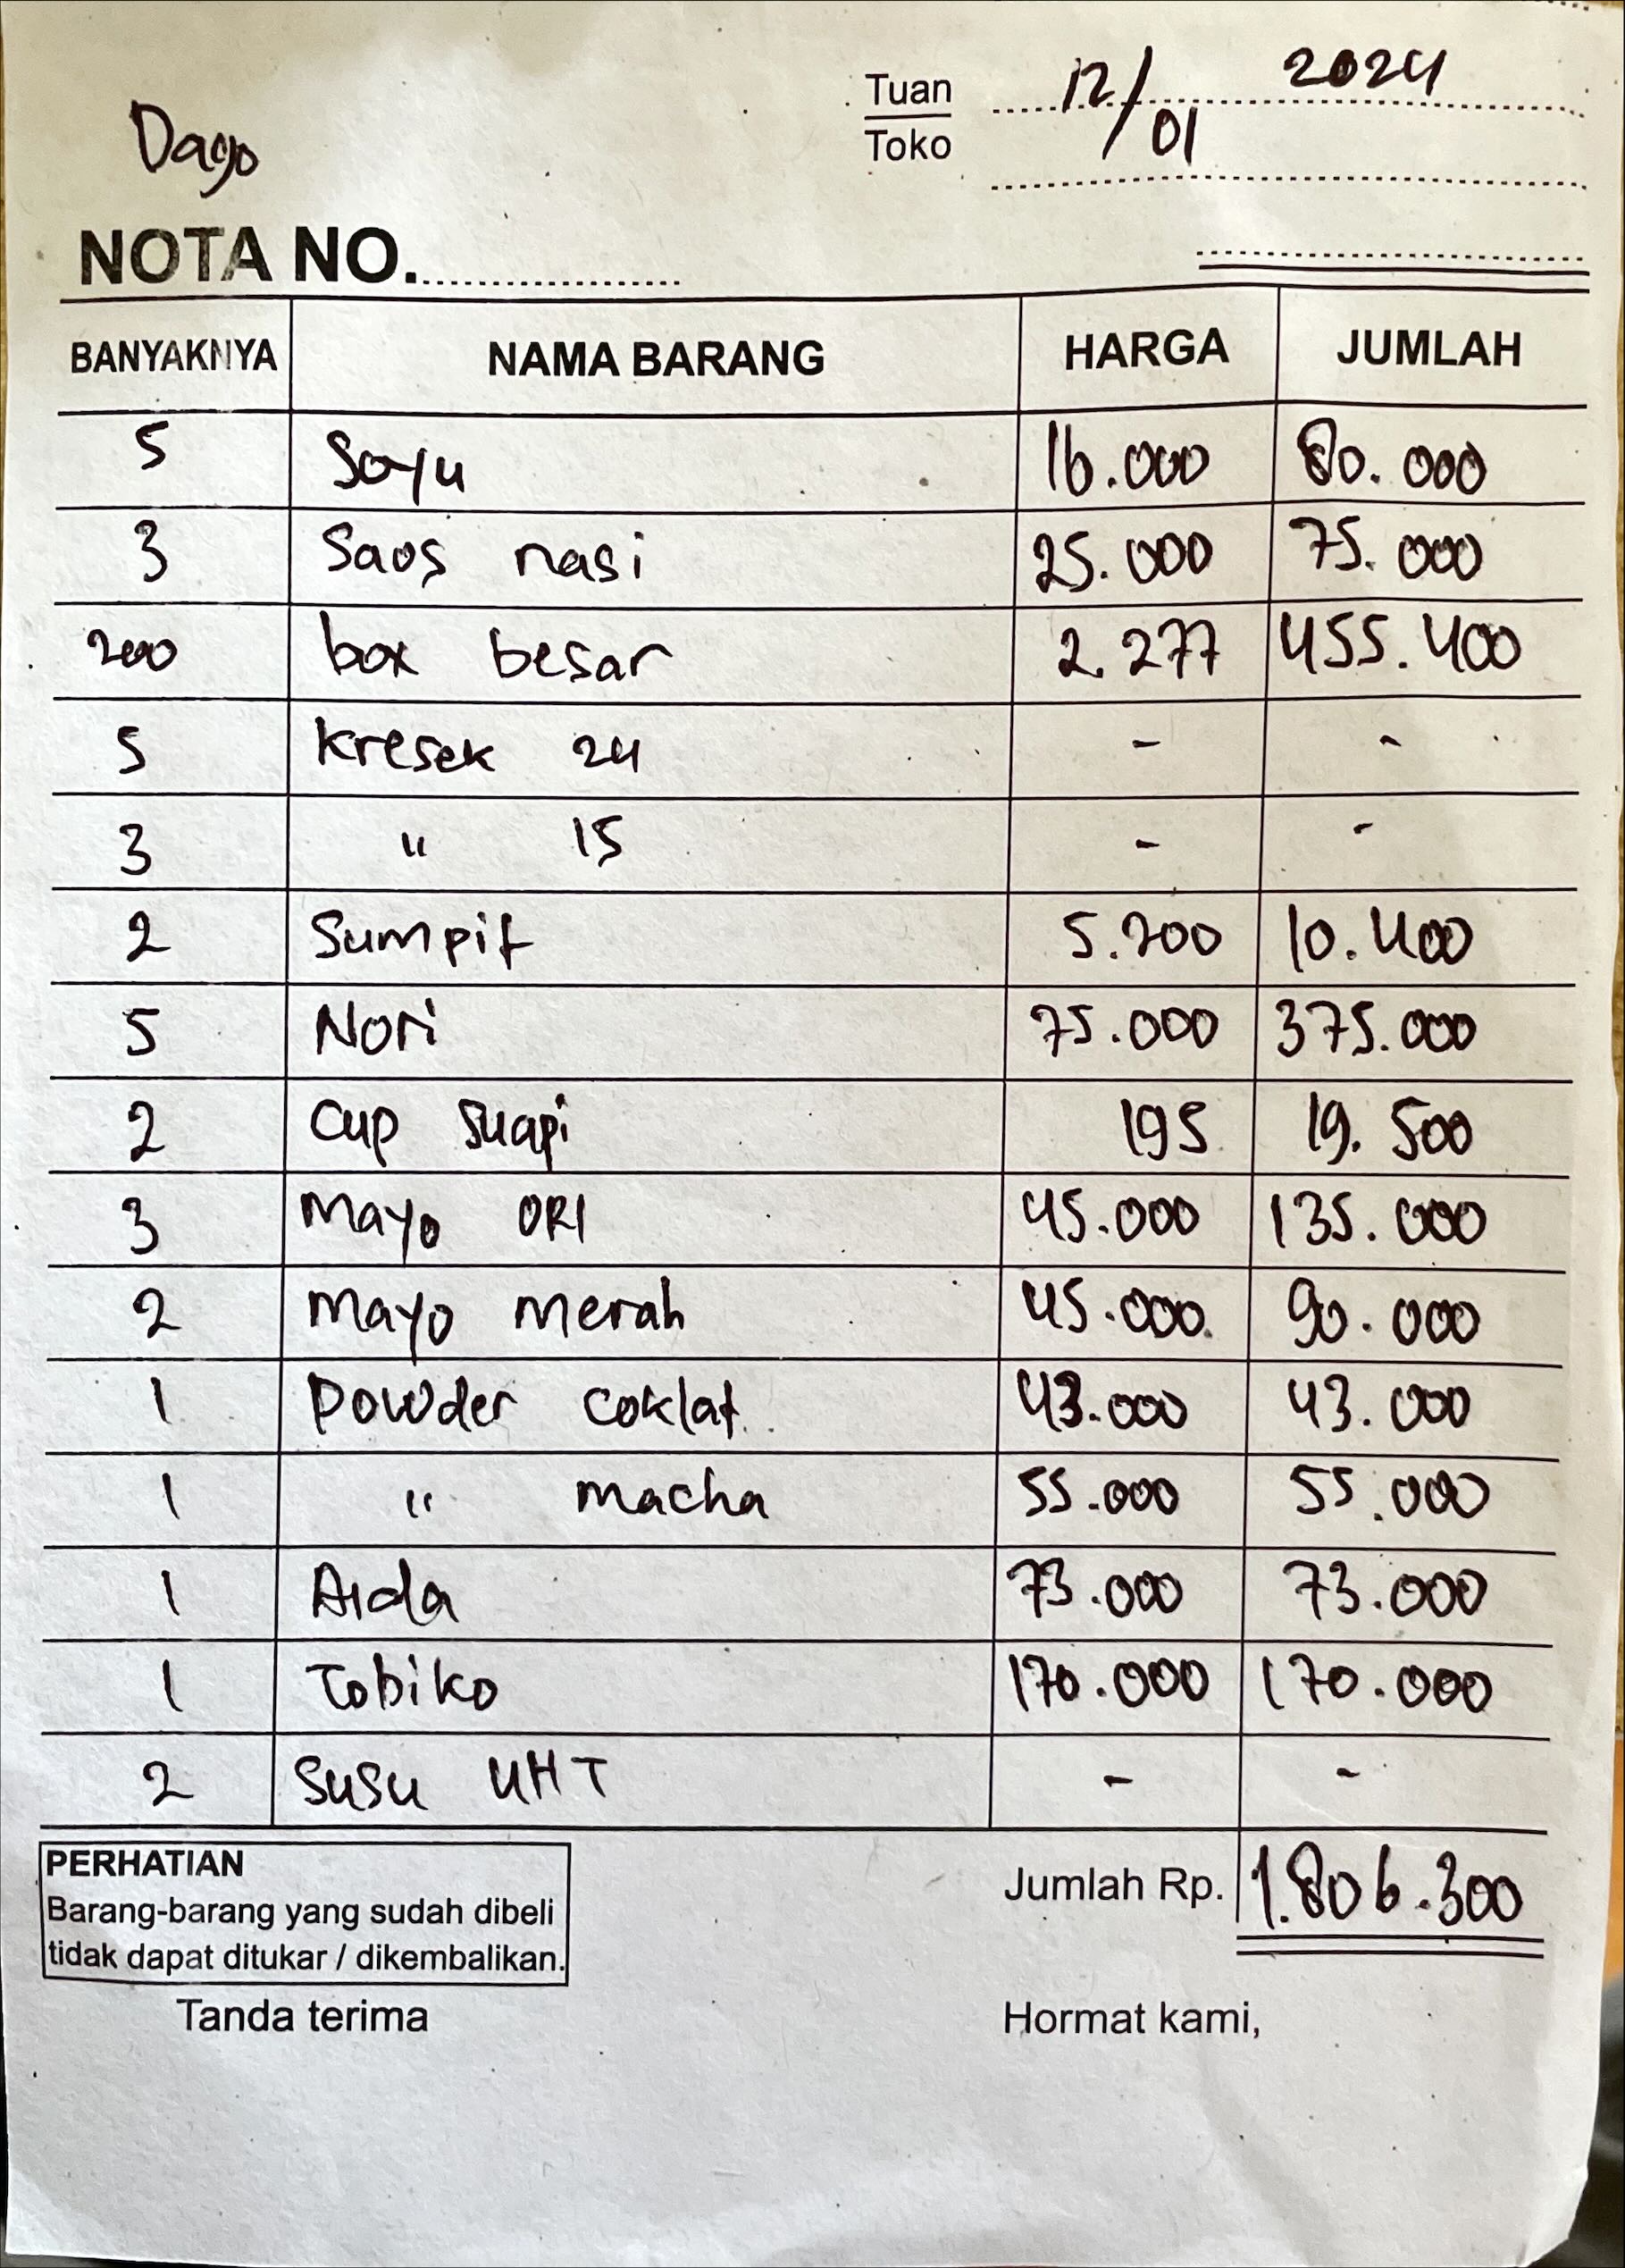 Tuan 12/01 2024
Toko
Dago
NOTA NO.
BANYAKNYA NAMA BARANG HARGA JUMLAH
5 Soyu 16.000 80.000
3 Saos nasi 25.000 75.000
200 box besar 2.277 455.400
5 kresek 24 - -
3 " 15 - -
2 Sumpit 5.200 10.400
5 Nori 75.000 375.000
2 Cup suapi 195 19.500
3 Mayo ORI 45.000 135.000
2 Mayo merah 45.000 90.000
1 Powder coklat 43.000 43.000
1 " macha 55.000 55.000
1 Aida 73.000 73.000
1 Tobiko 170.000 170.000
2 Susu UHT - -
PERHATIAN
Barang-barang yang sudah dibeli
tidak dapat ditukar / dikembalikan.
Jumlah Rp. 1.806.300
Tanda terima Hormat kami,